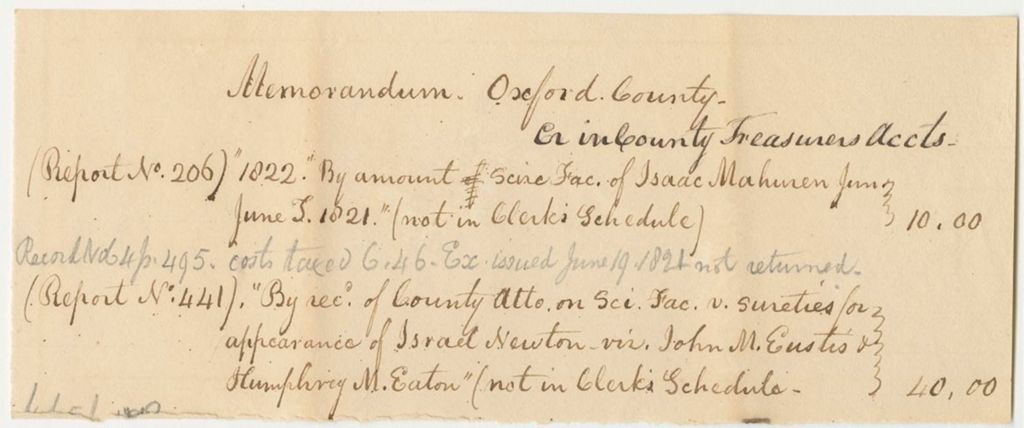 Memorandum. Oxford County-
Cr in County Treasurers Accts-
(Report No. 206) "1822." By amount of Scire Fac. of Isaac Mahuren Jun
June T. 1821." (not in Clerk's Schedule) 10.00
Record Vol 4 p. 495. costs taxed 6.46 - Ex. issued June 19. 1821 not returned.
(Report No. 441). "By rec'd. of County Atto. on Sci. Fac. v. sureties for
appearance of Israel Newton - viz. John M. Eustis &
Humphrey M. Eaton" (not in Clerk's Schedule - 40,00